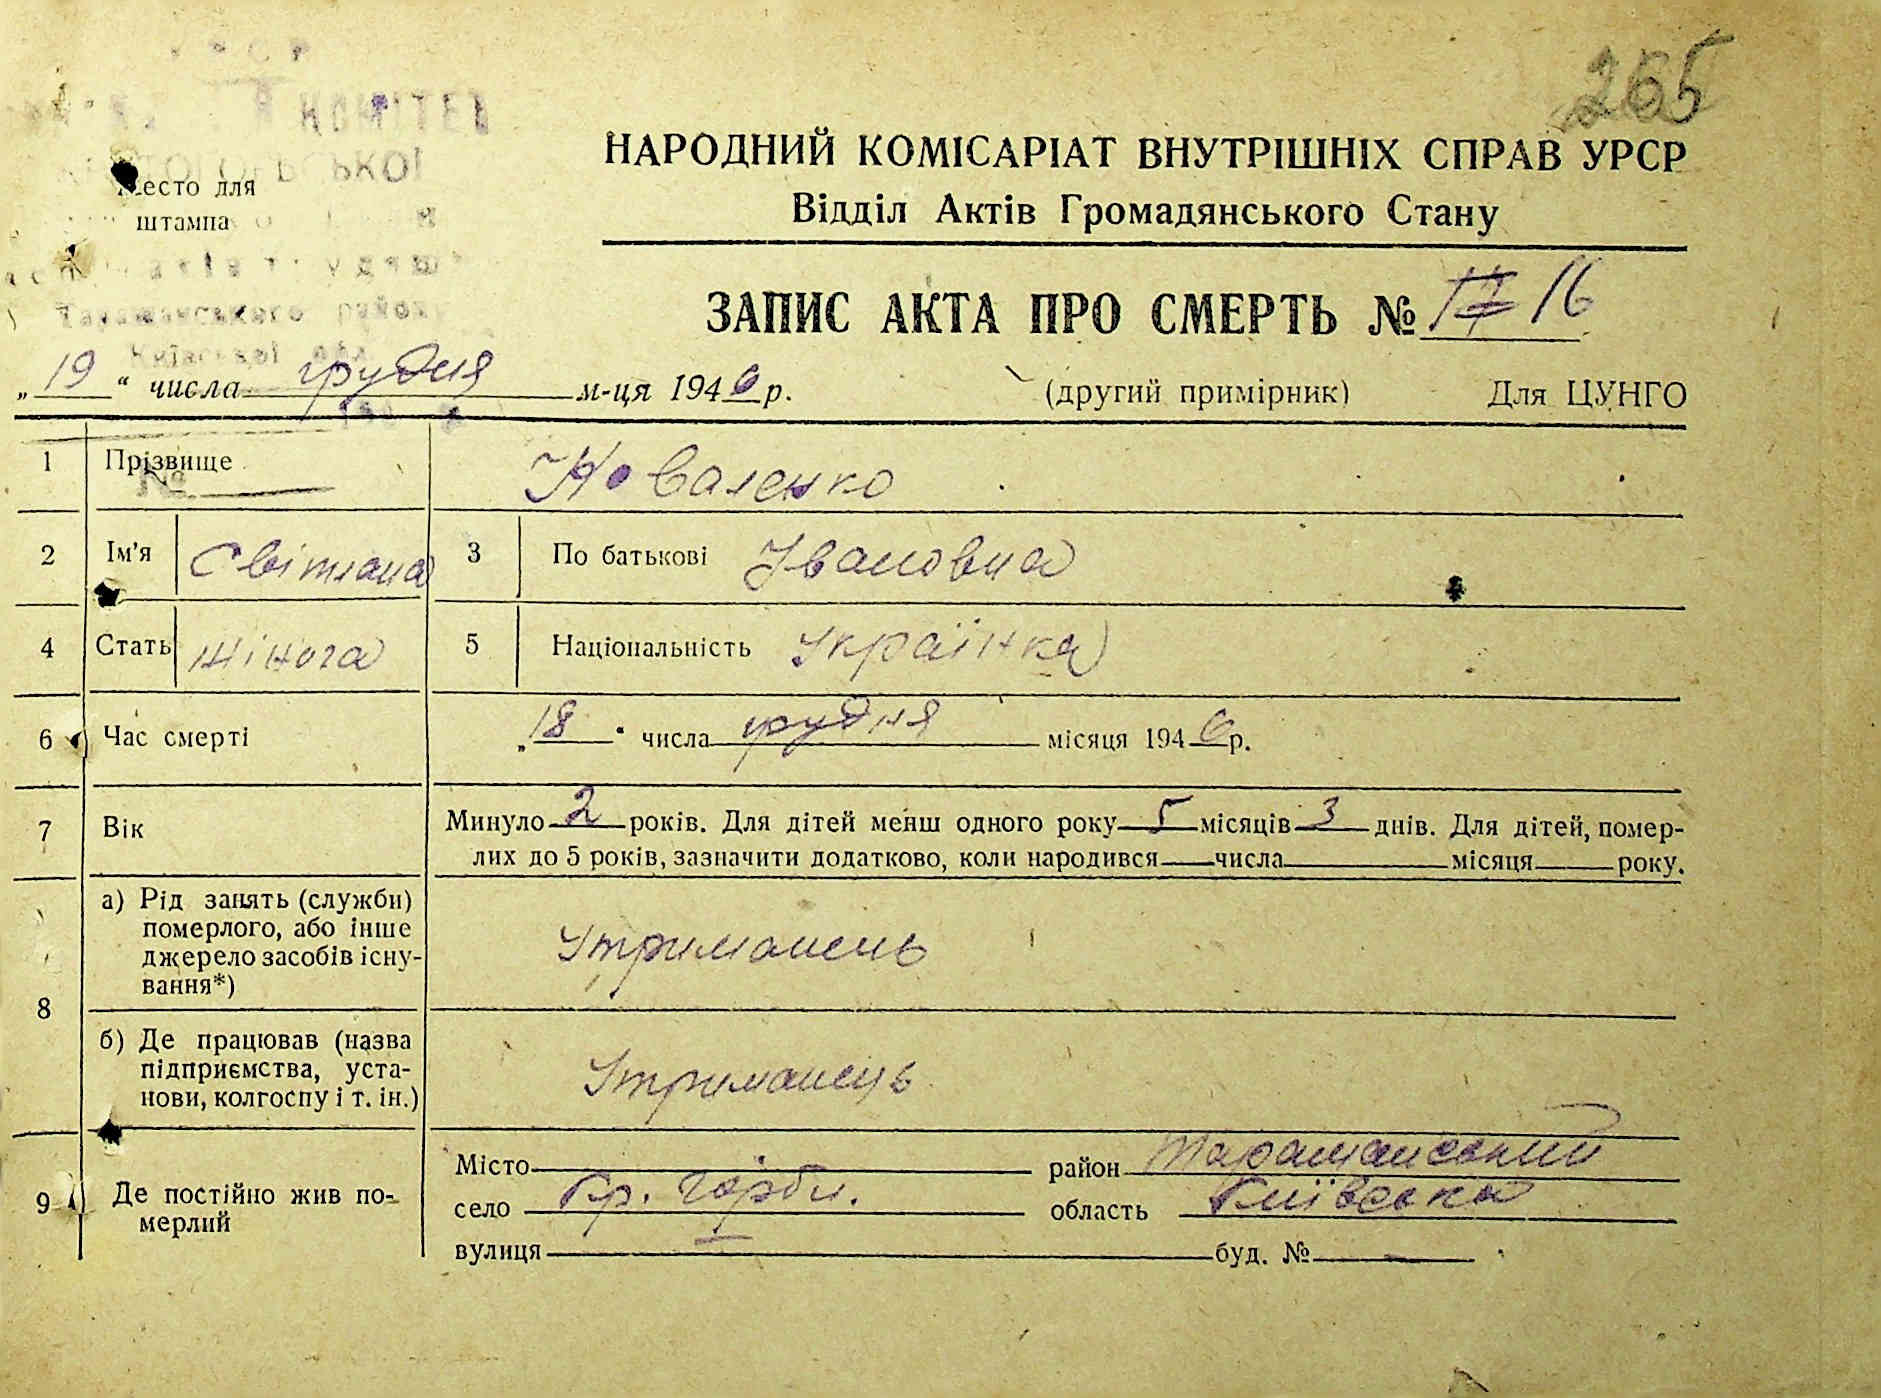 265
НАРОДНИЙ КОМІСАРІАТ ВНУТРІШНІХ СПРАВ УРСР
Відділ Актів Громадянського Стану
КОМІТЕТ
Место для
штампа
Таращанського району
Київської обл.
ЗАПИС АКТА ПРО СМЕРТЬ № 17 16
„19“ числа грудня м-ця 1946 р.
(другий примірник) Для ЦУНГО
№
1 Прізвище Коваленко
2 Ім'я Світлана 3 По батькові Івановна
4 Стать жіноча 5 Національність Українка
6 Час смерті „18“ числа грудня місяця 1946 р.
7 Вік Минуло 2 років. Для дітей менш одного року 5 місяців 3 днів. Для дітей, помер-
лих до 5 років, зазначити додатково, коли народився числа місяця року.
8 а) Рід занять (служби)
померлого, або інше
джерело засобів існу-
вання*) Утриманець
б) Де працював (назва
підприємства, уста-
нови, колгоспу і т. ін.) Утриманець
9 Де постійно жив по-
мерлий
Місто район Таращанський
село Кр. Горби. область Київська
вулиця буд. №